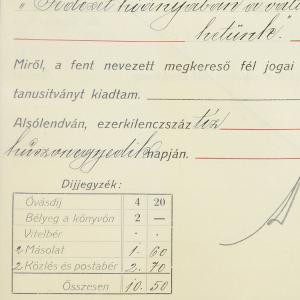 „Fedezet hiányában a váltó
hetünk."
Miről, a fent nevezett megkereső fél jogai
tanusitványt kiadtam.
Alsólendván, ezerkilenczszáz tíz
húszonegyedik napján.
Díjjegyzék:
Óvásdíj 4 20
Bélyeg a könyvön 2 —
Vitelbér . .
2 Másolat 1. 60
2 Közlés és postabér 2. 70
Összesen 10. 50